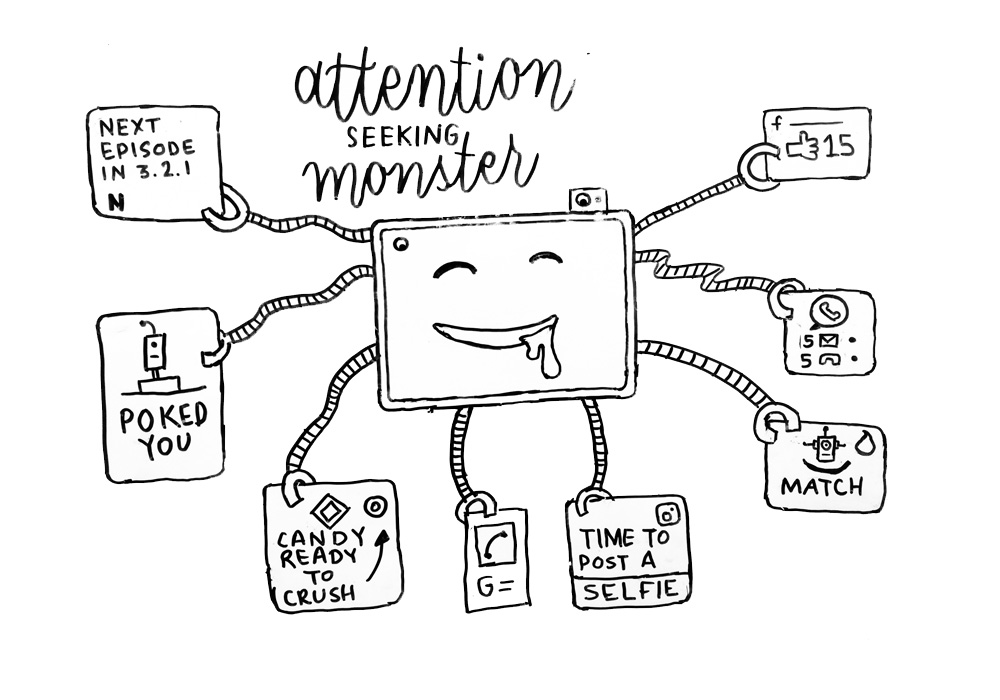 attention
SEEKING
monster
NEXT
EPISODE
IN 3.2.1
N
f
15
POKED
YOU
15
5
CANDY
READY
TO
CRUSH
G=
TIME TO
POST A
SELFIE
MATCH